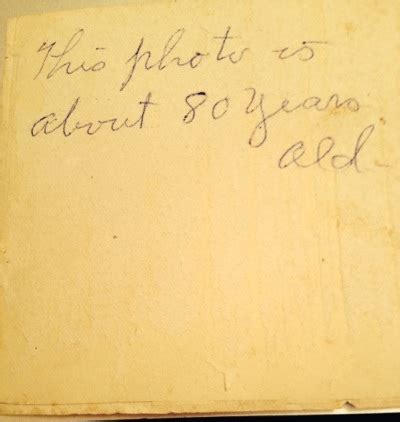 This photo is
about 80 years
old-